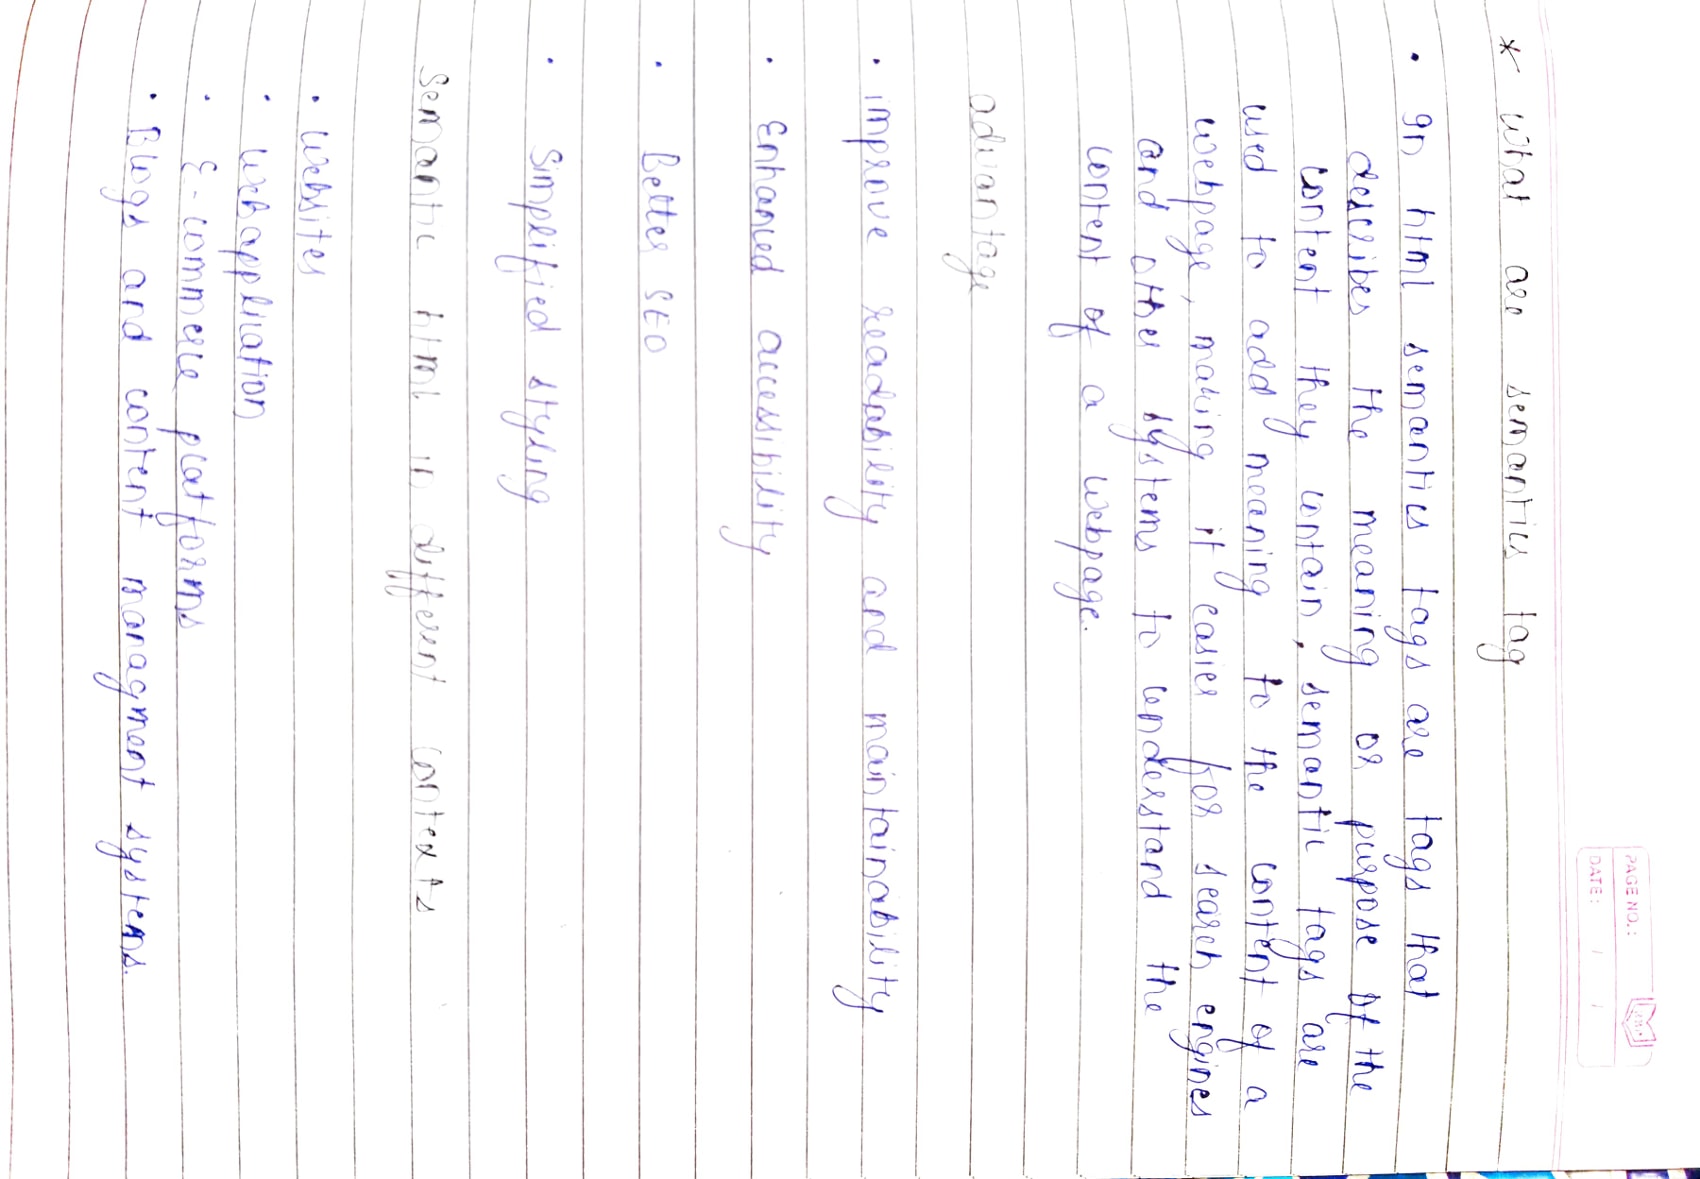 PAGE NO.:
DATE: / /
* what are semantics tag
• In html semantics tags are tags that
describes the meaning or purpose of the
content they contain, semantic tags are
used to add meaning to the content of a
webpage, making it easier for search engines
and other systems to understand the
content of a webpage.
advantage
• improve readability and maintainability
• Enhanced accessibility
• Better SEO
• Simplified styling
Semantic html in different contexts
• Websites
• Web application
• E-commerce platforms
• Blogs and content managment systems.